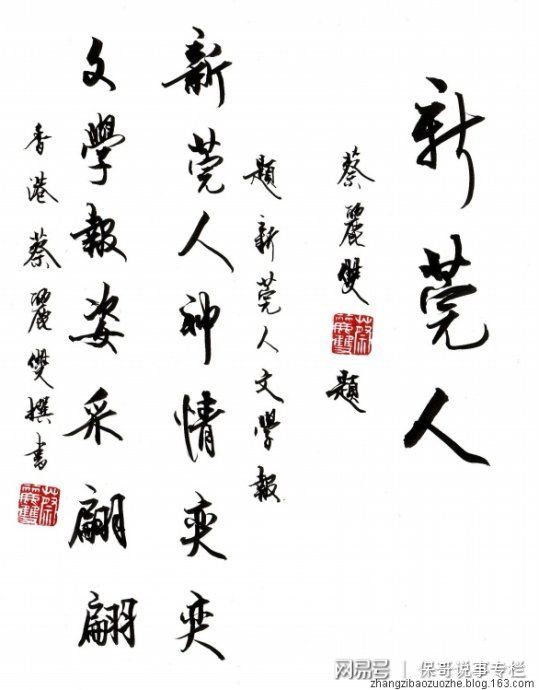 新莞人
蔡麗雙題
蔡麗雙
題新莞人文學報
新莞人神情奕奕
文學報姿采翩翩
香港蔡麗雙撰書
蔡麗雙
网易号 | 保哥说事专栏
zhangzibaozuozhe.blog.163.com